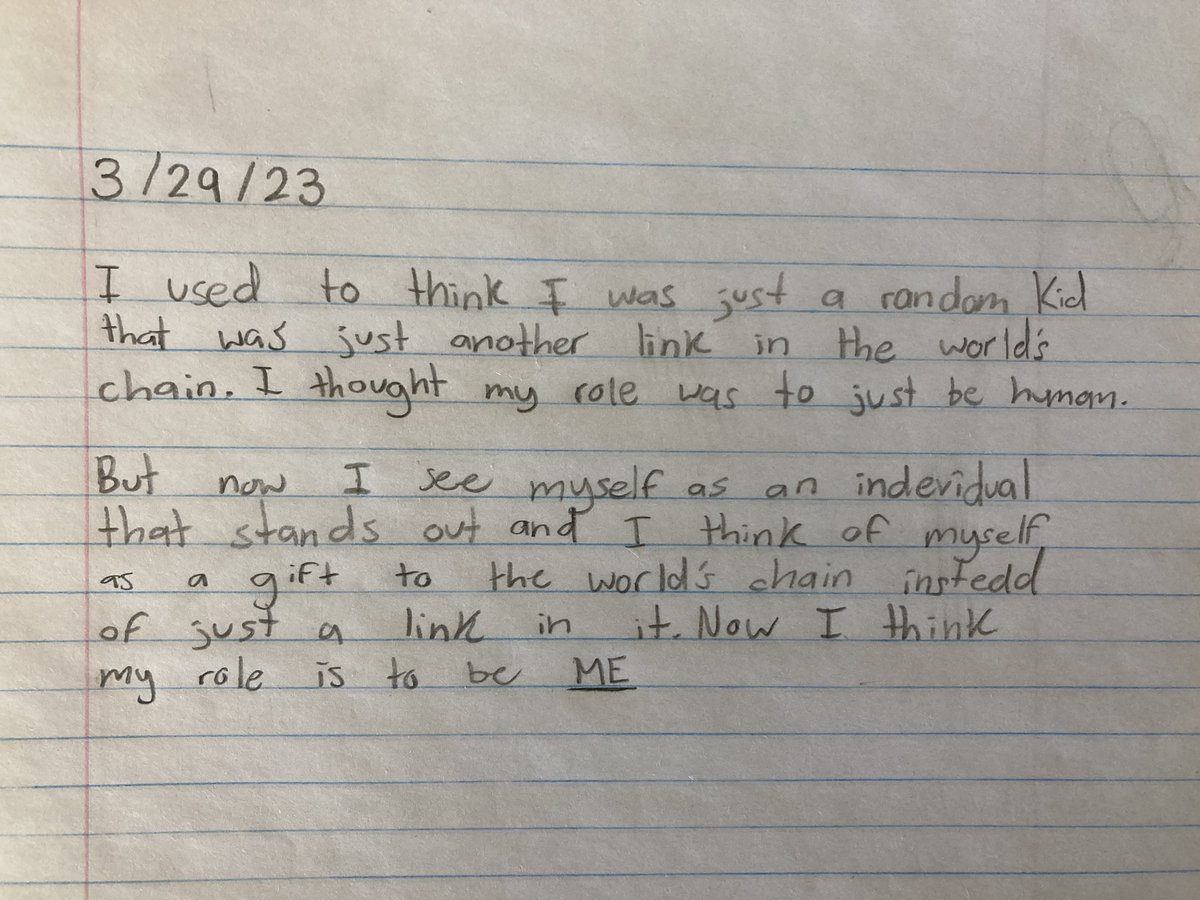 3/29/23
I used to think I was just a random Kid
that was just another link in the world's
chain. I thought my role was to just be human.
But now I see myself as an indevidual
that stands out and I think of myself
as a gift to the world's chain instedd
of just a link in it. Now I think
my role is to be ME